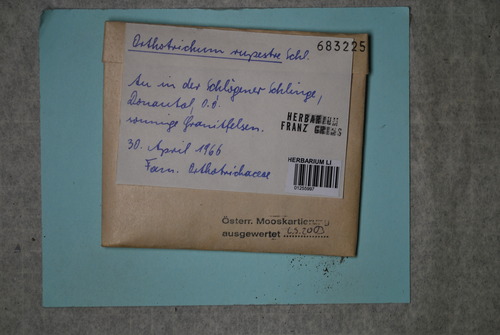 Orthotrichum rupestre Schl.
683225
An in der Schlögener Schlinge,
Donautal, O.Ö.
sonnige Granitfelsen.
HERBARIUM
FRANZ GRIMS
30. April 1966
Fam. Orthotrichaceae
HERBARIUM LI
Österr. Mooskartierung
ausgewertet